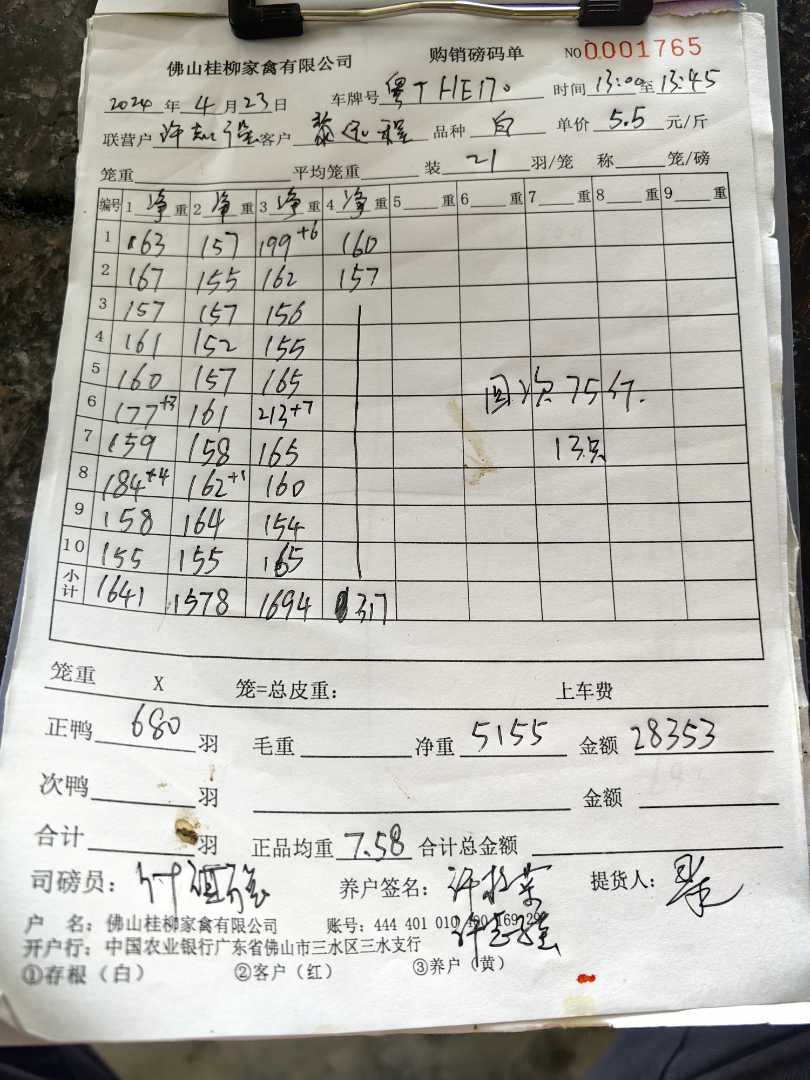 佛山桂柳家禽有限公司 购销磅码单 NO 0001765
2024年4月23日 车牌号 粤THE170 时间 13:00至13:45
联营户 客户 品种 白 单价 5.5 元/斤
笼重 平均笼重 装 21 羽/笼 称 笼/磅
编号 1 净 重 2 净 重 3 净 重 4 净 重 5 重 6 重 7 重 8 重 9 重
1 163 157 199+6 160
2 167 155 162 157
3 157 157 156
4 161 152 155
5 160 157 165
6 177+3 161 213+7
7 159 158 165
8 184+4 162+1 160
9 158 164 154
10 155 155 165
回次75斤.
13只
小计 1641 1578 1694 317
笼重 X 笼=总皮重: 上车费
正鸭 680 羽 毛重 净重 5155 金额 28353
次鸭 羽 金额
合计 羽 正品均重 7.58 合计总金额
司磅员: 养户签名: 提货人:
户 名: 佛山桂柳家禽有限公司 账号: 444 401 010 400 169 29
开户行: 中国农业银行广东省佛山市三水区三水支行
①存根(白) ②客户(红) ③养户(黄)